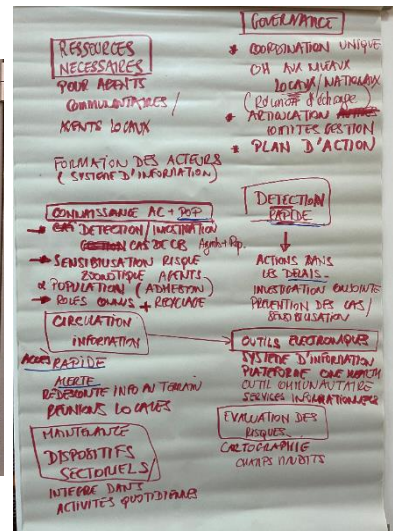 RESSOURCES
NECESSAIRES
POUR AGENTS
COMMUNAUTAIRES/
AGENTS LOCAUX
FORMATION DES ACTEURS
(SYSTEME D'INFORMATION)
CONNAISSANCE AC + POP
→ CAS DETECTION/INVESTIGATION
CAS DE CB Agents + Pop.
→ SENSIBILISATION RISQUE
ZOONOTIQUE AGENTS
POPULATION (ADHESION)
→ ROLES CONNUS + RECYCLAGE
CIRCULATION
INFORMATION
ACCES RAPIDE
ALERTE
REDESCENTE INFO AU TERRAIN
REUNIONS LOCALES
MAINTENANCE
DISPOSITIFS
SECTORIELS
INTEGRE DANS
ACTIVITÉS QUOTIDIENNES
GOVERNANCE
* COORDINATION UNIQUE
OH AUX NIVEAUX
LOCAUX/NATIONAUX
(Réunion d'échange)
* ARTICULATION
COMITES GESTION
* PLAN D'ACTION
DETECTION
RAPIDE
ACTIONS DANS
LES DELAIS
INVESTIGATION CONJOINTE
PREVENTION DES CAS/
SENSIBILISATION
OUTILS ELECTRONIQUES
SYSTEME D'INFORMATION
PLATEFORME ONE HEALTH
OUTIL COMMUNAUTAIRE
SERVICES INFORMATIONNELS
EVALUATION DES
RISQUES
CARTOGRAPHIE
CHAMPS MAUDITS